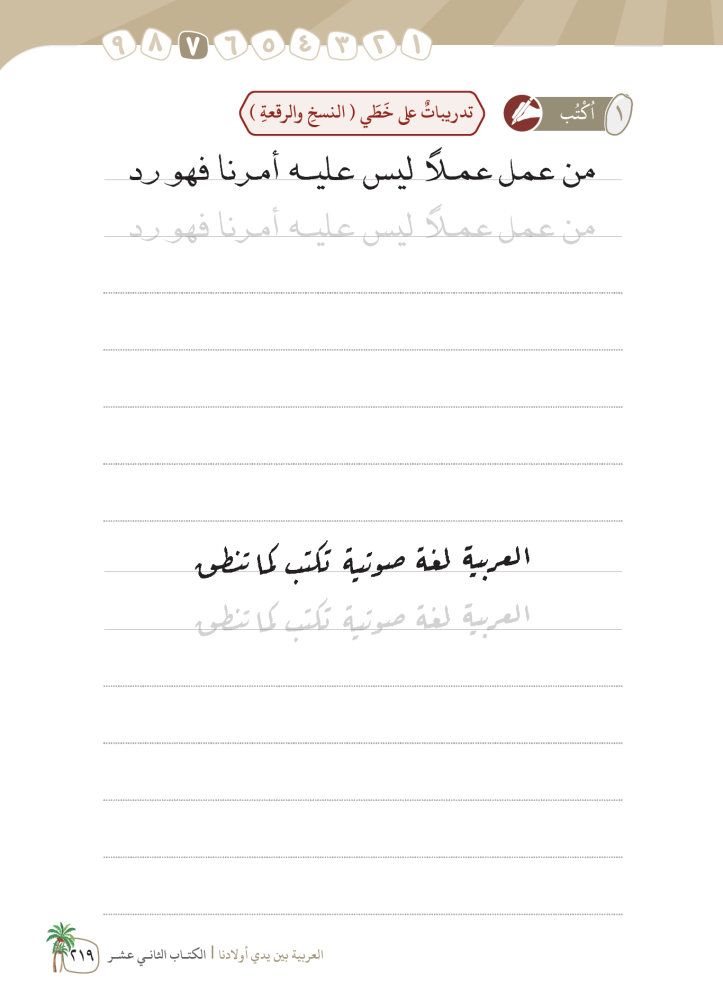 ١ ٢ ٣ ٤ ٥ ٦ ٧ ٨ ٩
١ اُكْتُب
تدريباتٌ على خَطَي ( النسخِ والرقعةِ )
من عمل عمـلاً ليس عليـه أمـرنا فهو رد
من عمل عمـلاً ليس عليـه أمـرنا فهو رد
العربية لغة صوتية تكتب كما تنطق
العربية لغة صوتية تكتب كما تنطق
العربية بين يدي أولادنا | الكتـاب الثانـي عشـر
٢١٩